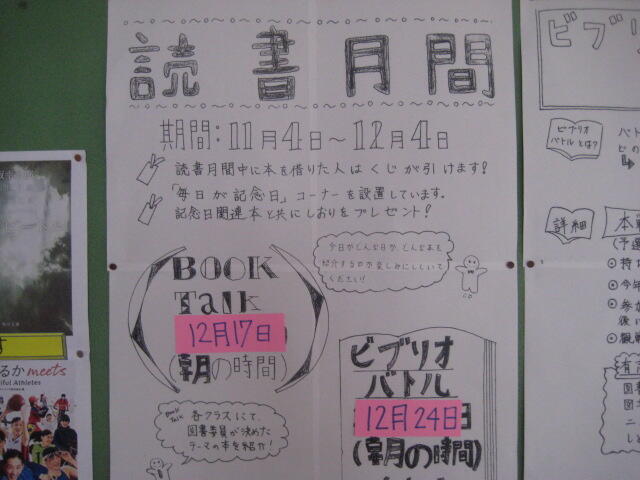 読書月間
期間:11月4日~12月4日
読書月間中に本を借りた人はくじが引けます!
「毎日が記念日」コーナーを設置しています。
記念日関連本と共にしおりをプレゼント!
今日がどんな日か、どんな本を
紹介するのか楽しみにしていて
ください!
BOOK
Talk
12月17日
(朝の時間)
Book
Talk
各クラスにて、
図書委員が決めた
テーマの本を紹介!
ビブリオ
バトル
12月24日
(朝の時間)
ビブリ
ビブリオ
バトルとは?
詳細
るか meets
iful Athletes